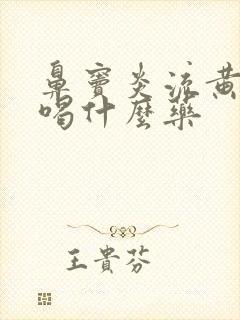 鼻竇炎流黃
喝什麼藥
王貴芬